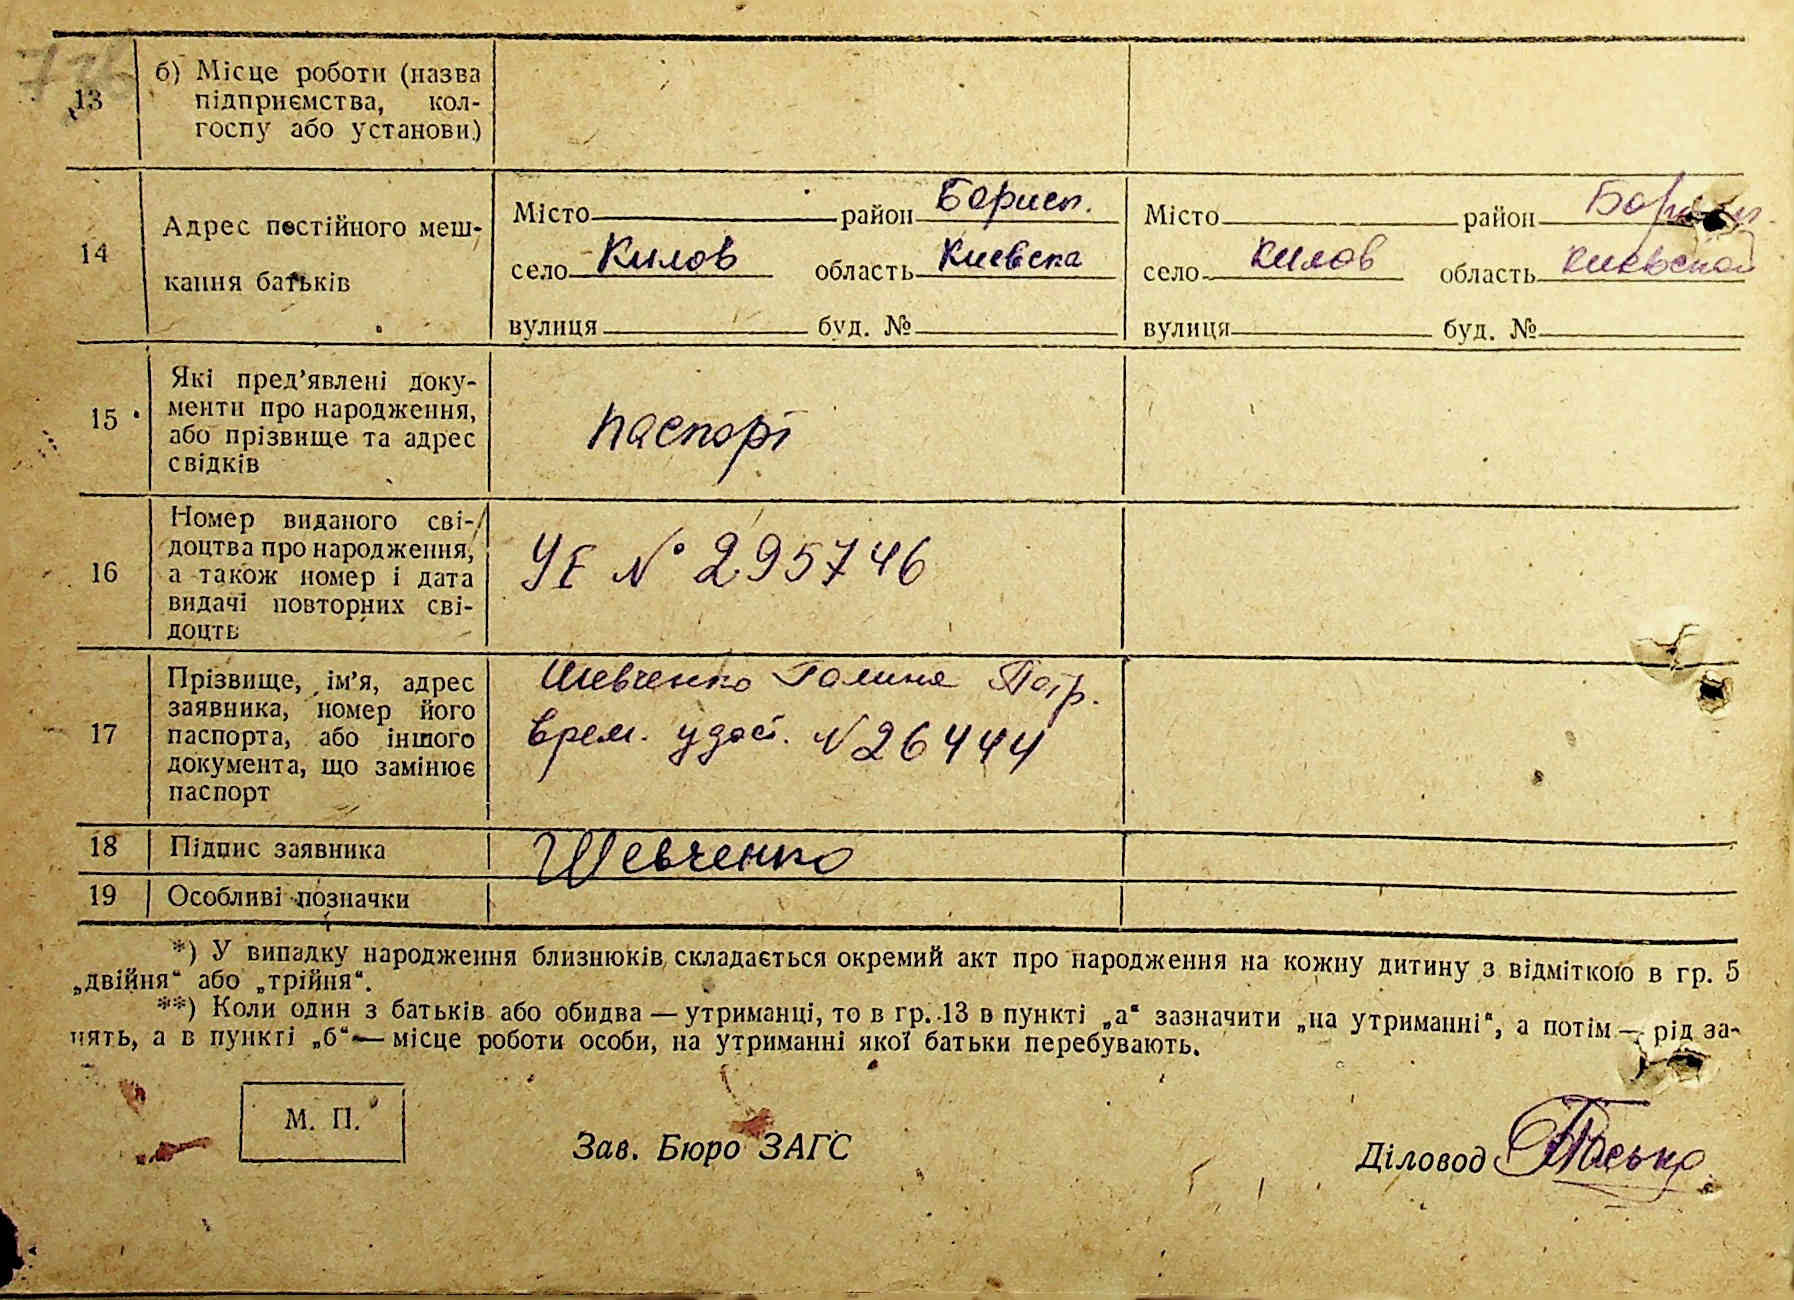 13
б) Місце роботи (назва
підприємства, кол-
госпу або установи)
14
Адрес постійного меш-
кання батьків
Місто район Борисп.
село Килов область Киевска
вулиця буд. №
Місто район
село Килов область Киевской
вулиця буд. №
15
Які пред’явлені доку-
менти про народження,
або прізвище та адрес
свідків
паспорт
16
Номер виданого сві-
доцтва про народження,
а також номер і дата
видачі повторних сві-
доцтв
УЕ № 295746
17
Прізвище, ім’я, адрес
заявника, номер його
паспорта, або іншого
документа, що замінює
паспорт
Шевченко Галина Петр.
врем. удост. № 26444
18
Підпис заявника
Шевченко
19
Особливі позначки
*) У випадку народження близнюків складається окремий акт про народження на кожну дитину з відміткою в гр. 5
„двійня“ або „трійня“.
**) Коли один з батьків або обидва — утриманці, то в гр. 13 в пункті „а“ зазначити „на утриманні“, а потім — рід за-
нять, а в пункті „б“ — місце роботи особи, на утриманні якої батьки перебувають.
М. П.
Зав. Бюро ЗАГС
Діловод